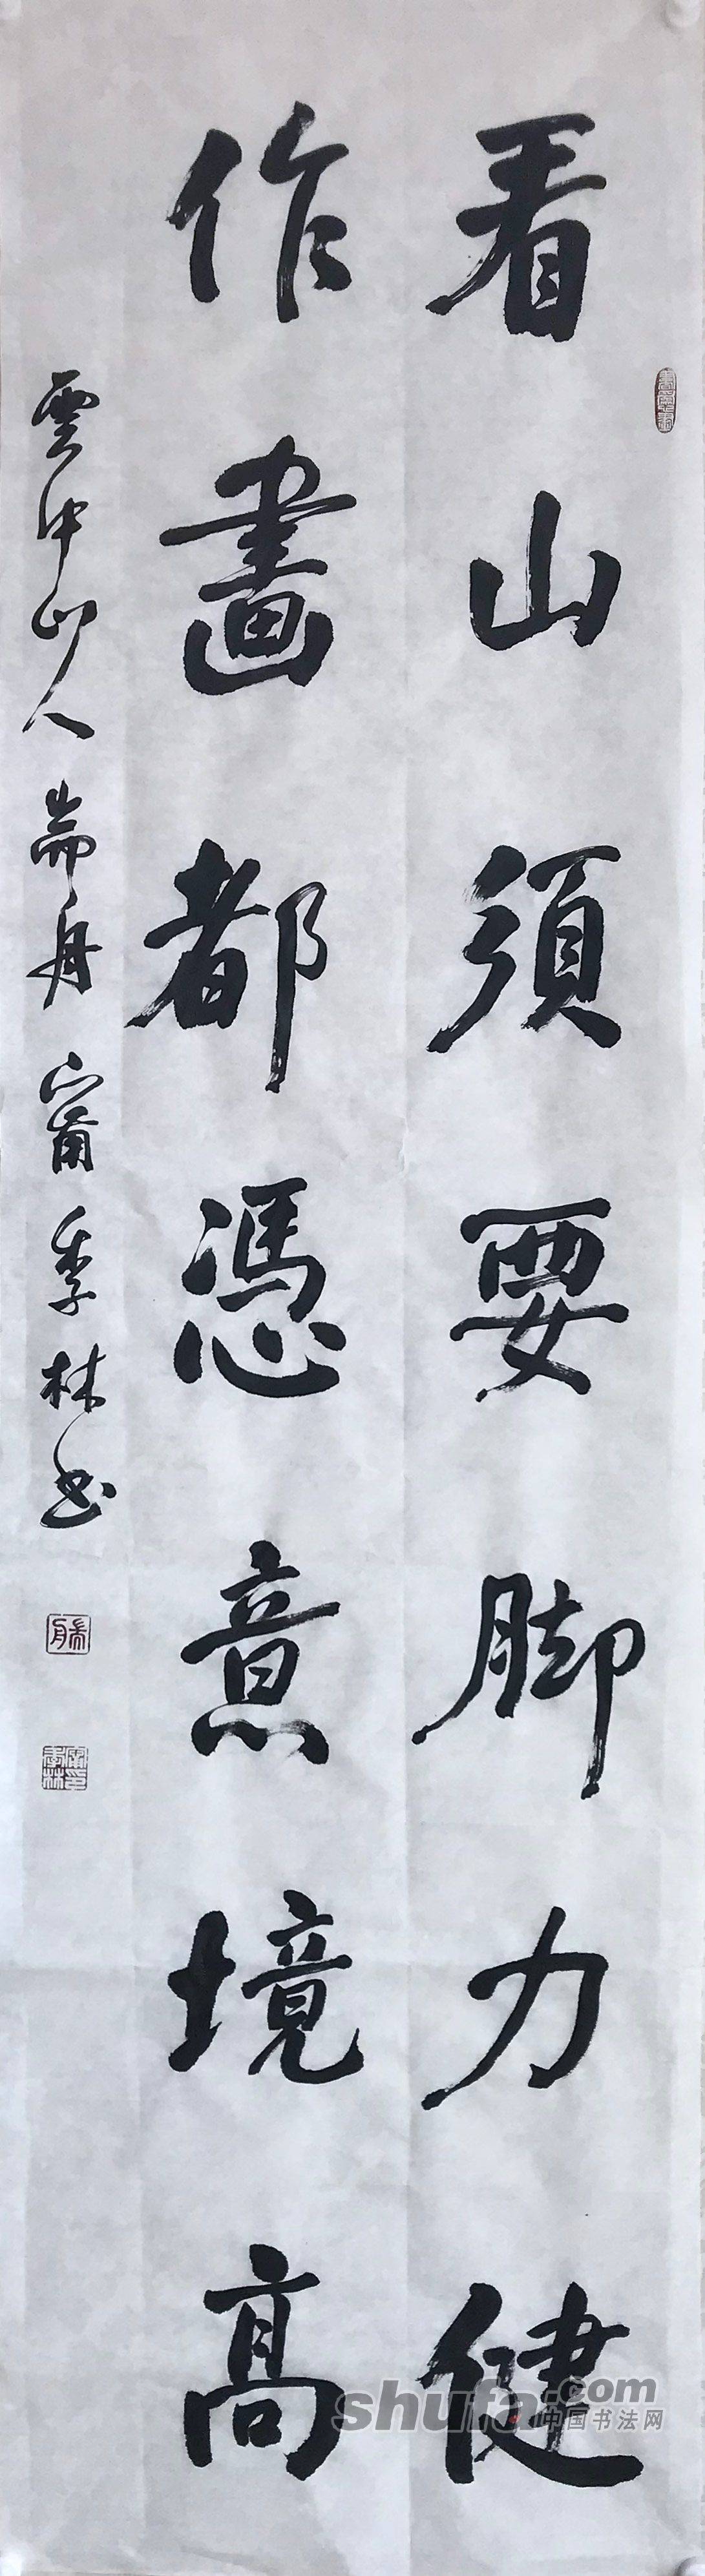 看山須要脚力健
作畫都憑意境高
雲中山人 耑舟 甯季林书
shufa.com
中国书法网